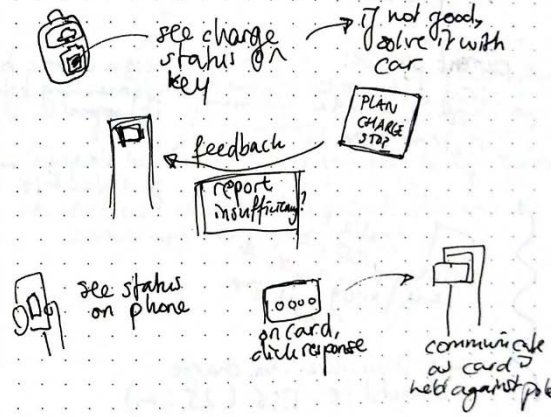 see charge
status on
key
if not good,
solve it with
car
PLAN
CHARGE
STOP
feedback
report
insufficiency?
see status
on phone
on card,
click response
communicate
as card is
held against pole